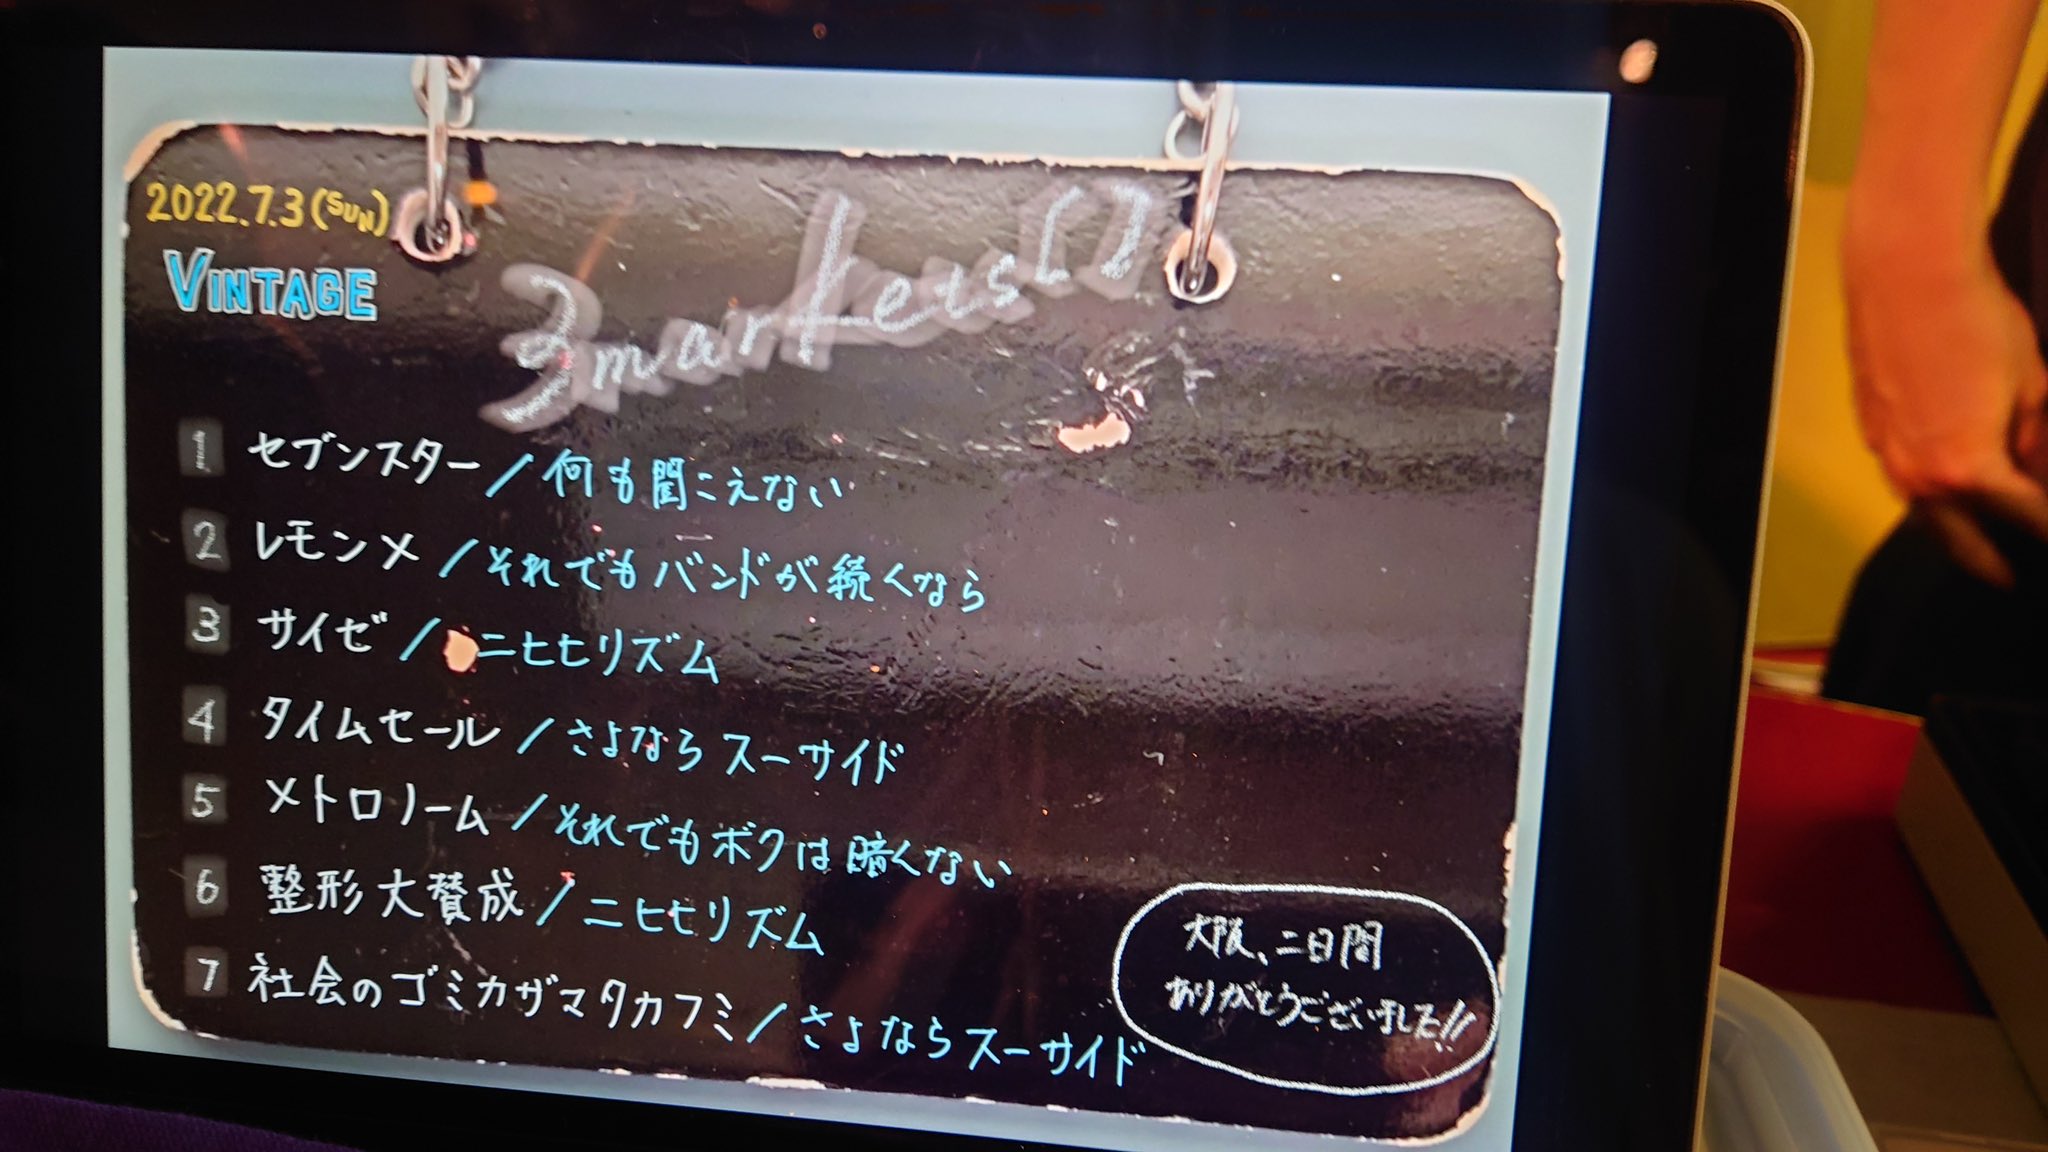 2022.7.3 (SUN)
VINTAGE
3markets[ ]
1 セブンスター / 何も聞こえない
2 レモン× / それでもバンドが続くなら
3 サイゼ / ニヒヒリズム
4 タイムセール / さよならスーサイド
5 メトロノーム / それでもボクは暗くない
6 整形大賛成 / ニヒヒリズム
7 社会のゴミカザマタカフミ / さよならスーサイド
大阪、二日間
ありがとうございました!!